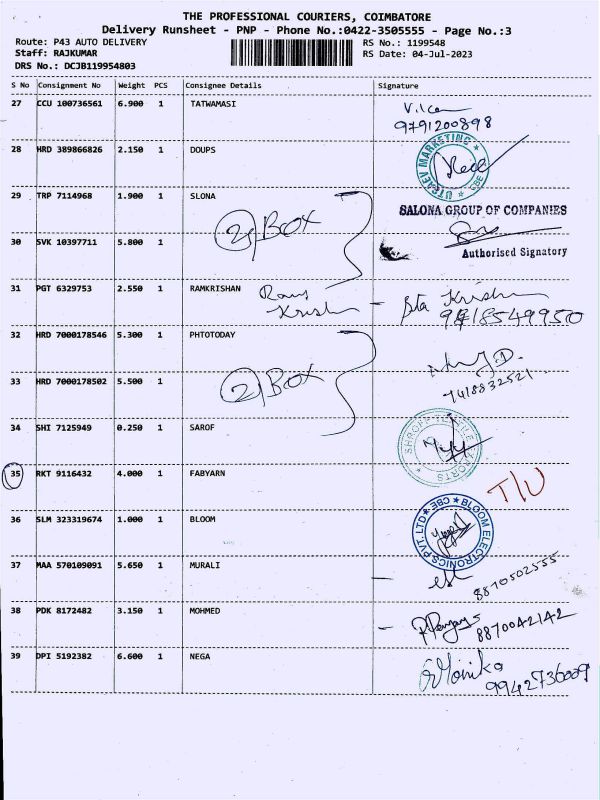 THE PROFESSIONAL COURIERS, COIMBATORE
Delivery Runsheet - PNP - Phone No.:0422-3505555 - Page No.:3
Route: P43 AUTO DELIVERY RS No.: 1199548
Staff: RAJKUMAR RS Date: 04-Jul-2023
DRS No.: DCJB119954803
S No Consignment No Weight PCS Consignee Details Signature
27 CCU 100736561 6.900 1 TATWAMASI
9791200898
28 HRD 389866826 2.150 1 DOUPS
UTSAEV MARKETING * CBE *
29 TRP 7114968 1.900 1 SLONA
SALONA GROUP OF COMPANIES
2 BOX
30 SVK 10397711 5.800 1
Authorised Signatory
31 PGT 6329753 2.550 1 RAMKRISHAN Ram Krishn
Krishn
32 HRD 7000178546 5.300 1 PHTOTODAY
2 BOX
33 HRD 7000178502 5.500 1
7418832521
34 SHI 7125949 0.250 1 SAROF
SHROFF TEXTILE EXPORTS
35 RKT 9116432 4.000 1 FABYARN
T/U
36 SLM 323319674 1.000 1 BLOOM
BLOOM ELECTRONICS PVT. LTD * CBE *
37 MAA 570109091 5.650 1 MURALI
8870502555
38 PDK 8172482 3.150 1 MOHMED
8870042142
39 DPI 5192382 6.600 1 NEGA
Monika
9942736009